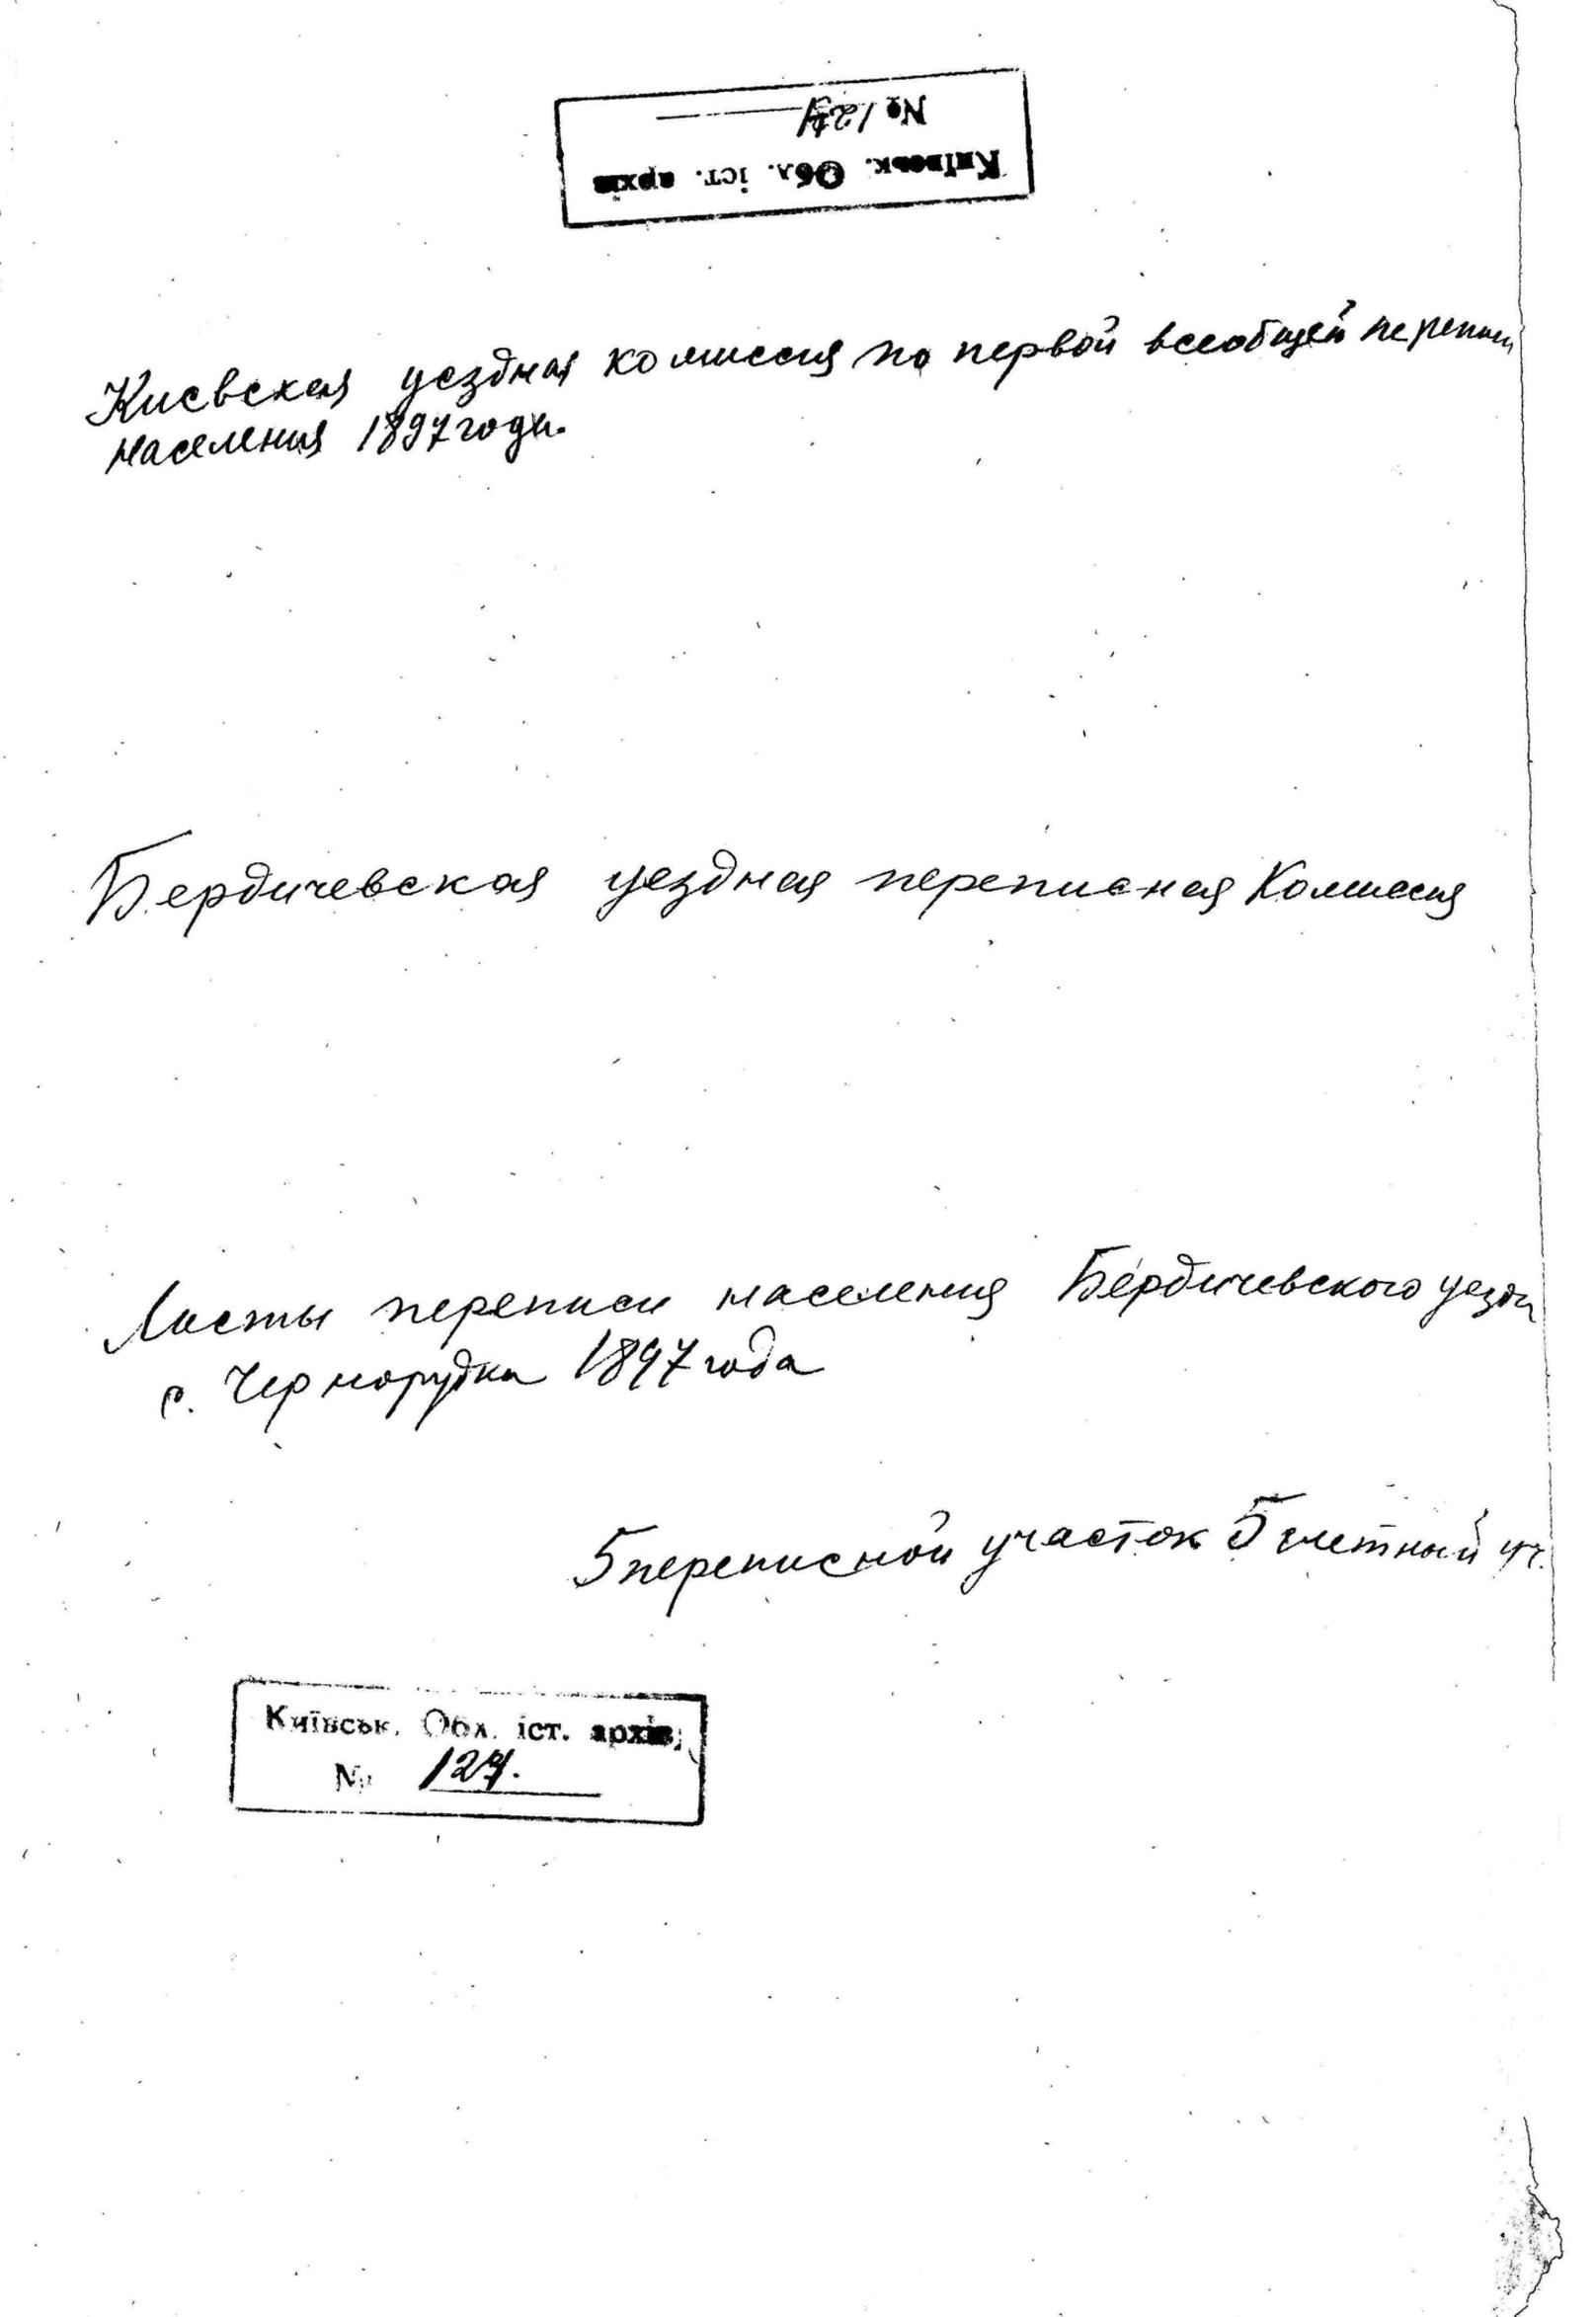 Київськ. Обл. іст. архів
№ 127
Киевская уездная комиссия по первой всеобщей переписи
населения 1897 года.
Бердичевская уездная переписная Комиссия
Листы переписи населения Бердичевского уезда
с. Чернорудка 1897 года
5 переписной участок 5 счетный уч.
Київськ. Обл. іст. архів
№ 127.